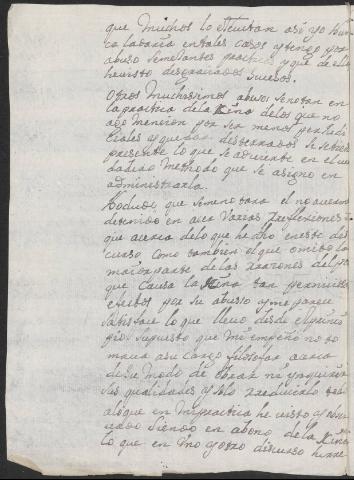 que muchos lo executan así, yo nun
ca la daria en tales casos y tengo por
abuso semejantes practicas y que de ello
he visto desgraciados sucesos.
Otros muchissimos abusos se notan en
la practica de la Kina de los que no
ago mencion por ser menos perjudi
ciales y quedan desterrados si se tiene
presente lo que se advierte en el
methodo que se asigno en
administrarla.
No dudo que se me notara el no averme
detenido en acer varias reflexiones
que acerca de lo que he dho en este dis
curso como tambien el que omito la
maior parte de las razones del por
que causa la Kina tan perniciosos
efectos por su abusso y me parece
satisface lo que llevo desde el princi
pio supuesto que mi empeño no to
maria a su cargo filosofar acerca
de su modo de obrar ni
sus qualidades y solo
a lo que en mi practica he visto y obser
vado siendo en abono de la Kina
lo que en uno y otro discurso